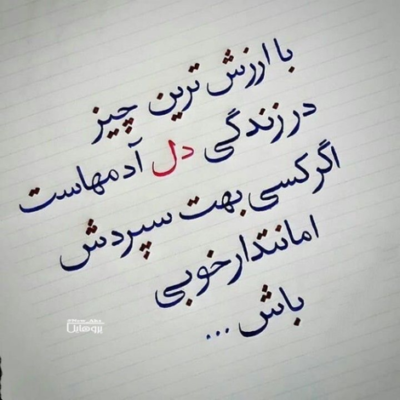 با ارزش ترین چیز
در زندگی دل آدمهاست
اگر کسی بهت سپردش
امانتدار خوبی
باش ...